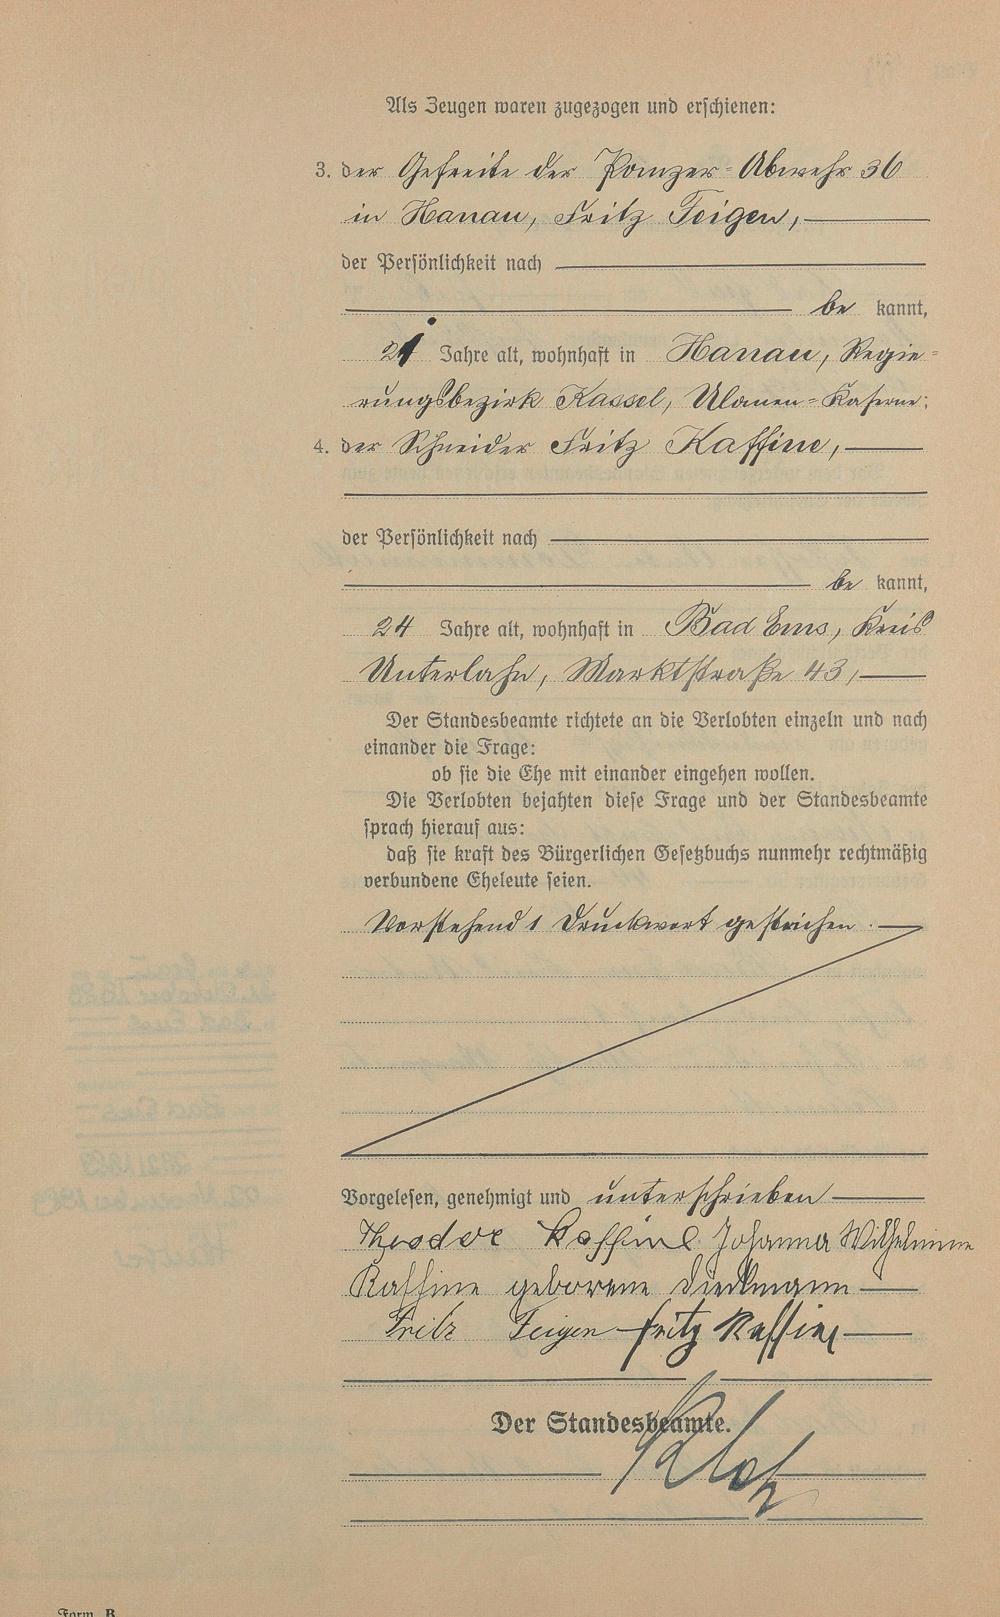 Als Zeugen waren zugezogen und erschienen:
3. der Gefreite der Panzer-Abwehr 36
in Hanau, Fritz Feigen,
der Persönlichkeit nach
be kannt,
21 Jahre alt, wohnhaft in Hanau, Regie-
rungsbezirk Kassel, Ulanen-Kaserne;
4. der Schneider Fritz Kaffine,
der Persönlichkeit nach
be kannt,
24 Jahre alt, wohnhaft in Bad Ems, Kreis
Unterlahn, Marktstraße 43,
Der Standesbeamte richtete an die Verlobten einzeln und nach
einander die Frage:
ob sie die Ehe mit einander eingehen wollen.
Die Verlobten bejahten diese Frage und der Standesbeamte
sprach hierauf aus:
daß sie kraft des Bürgerlichen Gesetzbuchs nunmehr rechtmäßig
verbundene Eheleute seien.
Vorstehend 1 Druckwort gestrichen.
Vorgelesen, genehmigt und unterschrieben
Theodor Kaffine Johanna Wilhelmine
Kaffine geborene Diedlmann
Fritz Feigen Fritz Kaffine
Der Standesbeamte.
Form. B.